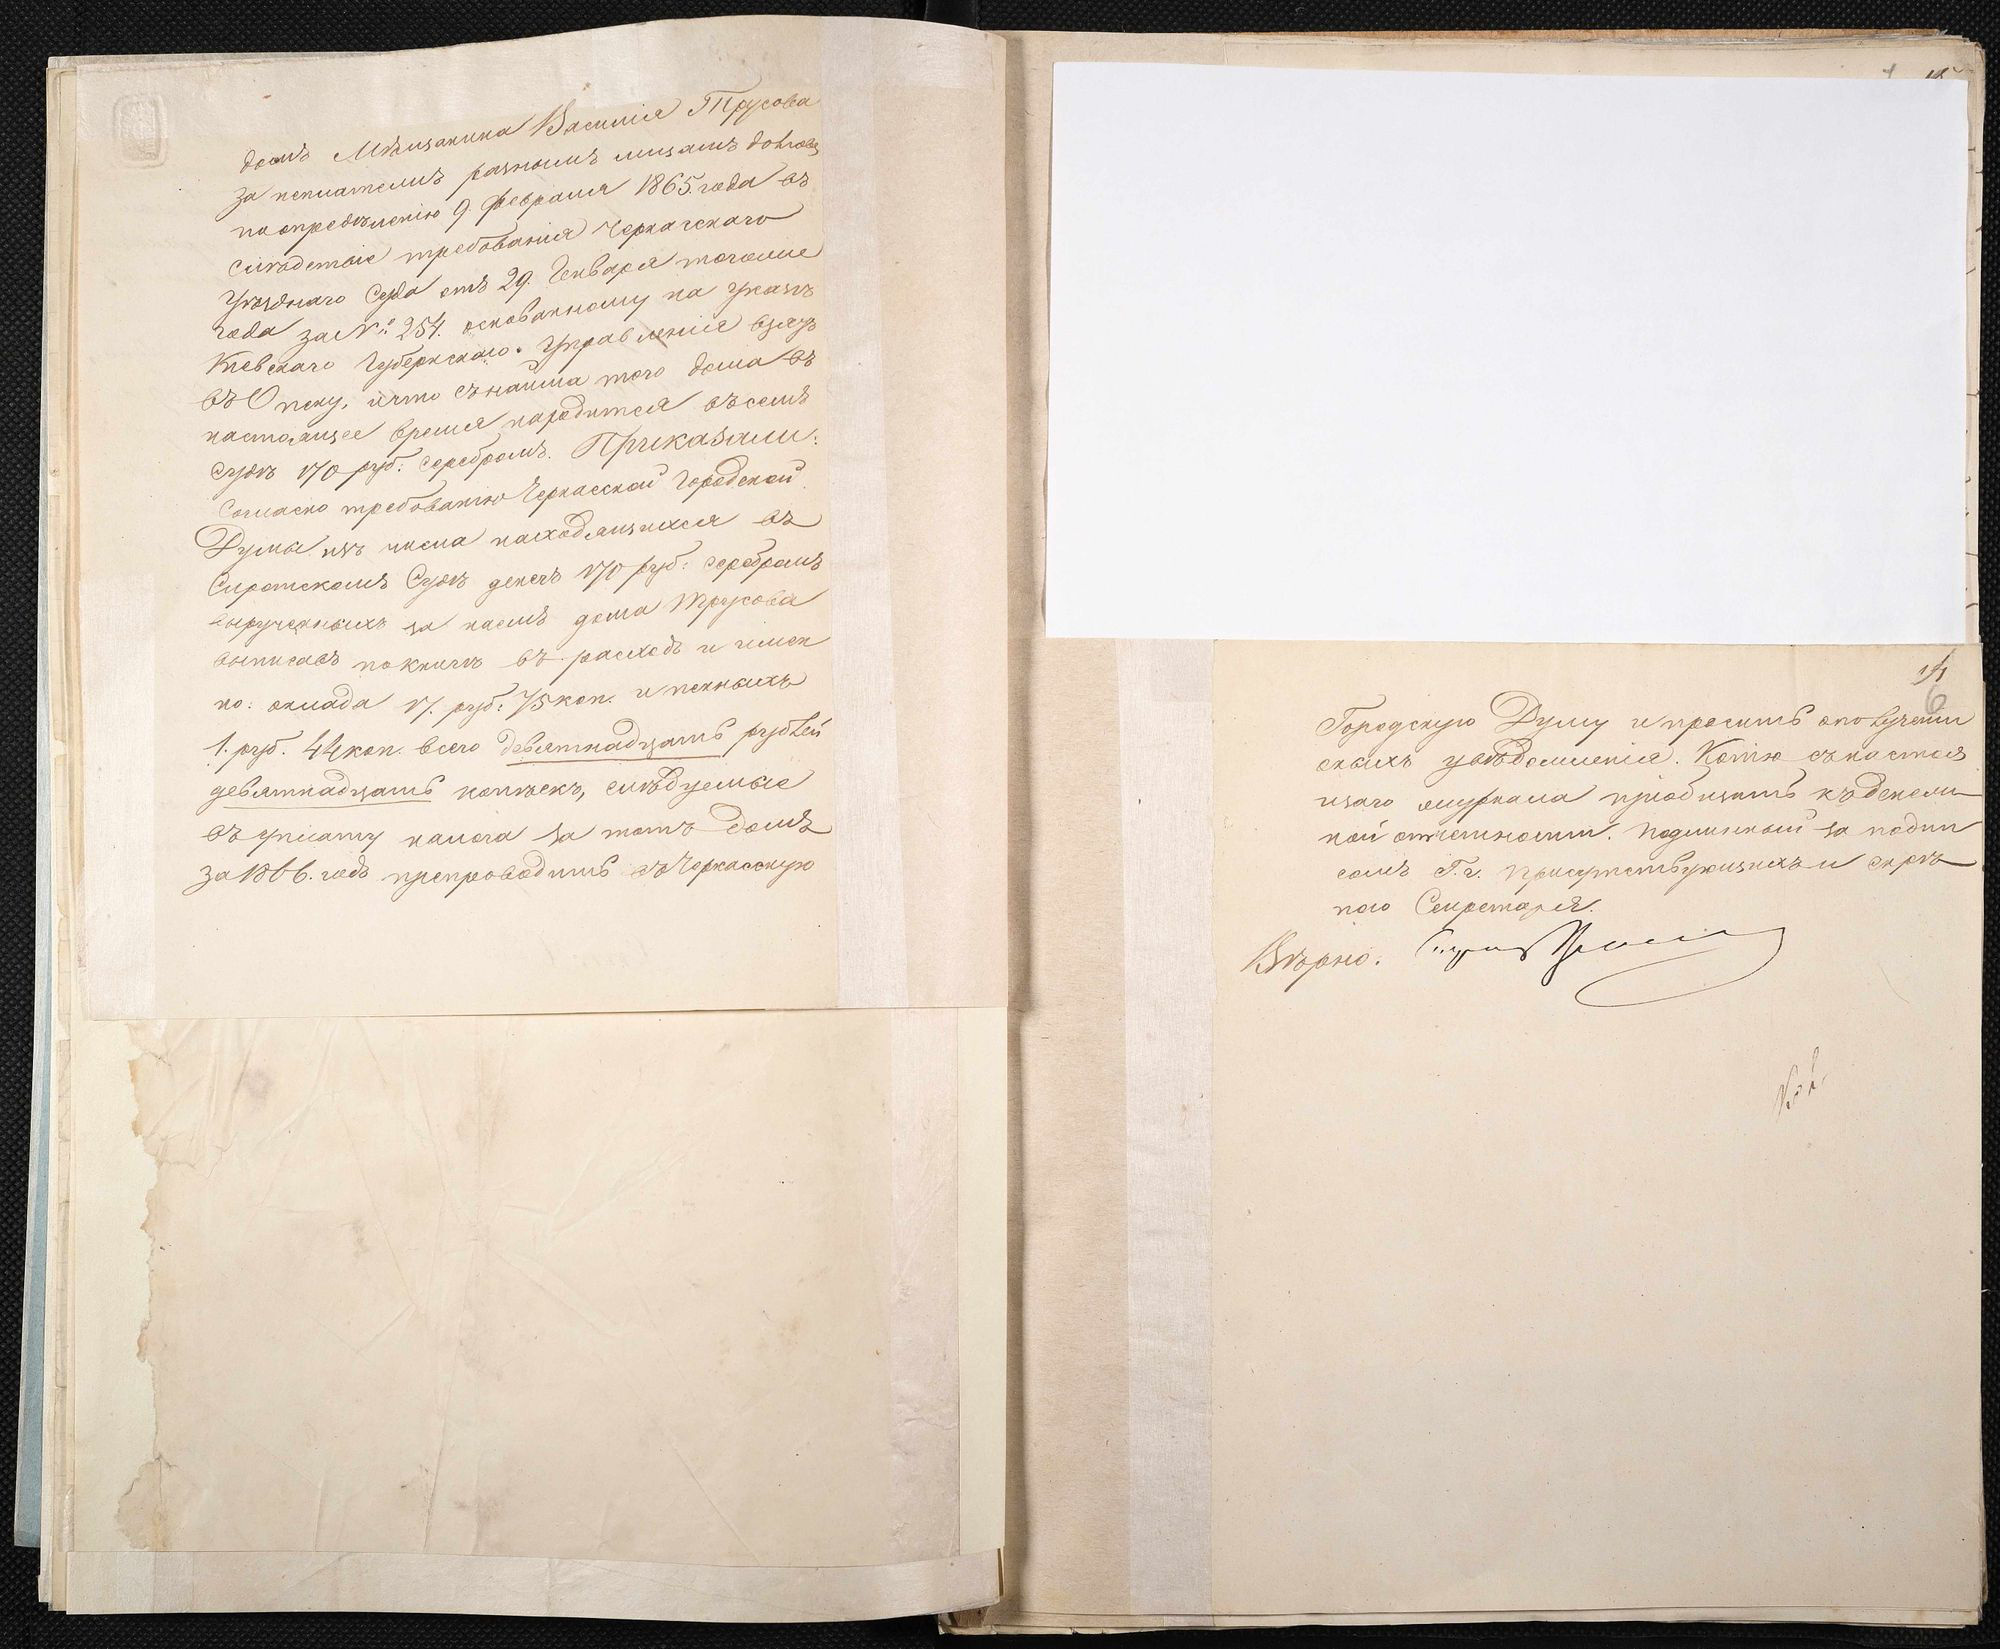 домъ Мѣщанина Василія Трусова
за неплатежъ разнымъ лицамъ долговъ
по опредѣленію 9. февраля 1865. года въ
слѣдствіе требованія Черкасскаго
Уѣзднаго Суда отъ 29. Генваря того же
года за № 254. основанному на указѣ
Кіевскаго Губернскаго. Управленія взятъ
въ Опеку, и что съ найма того дома въ
настоящее время находится въ семъ
Судѣ 170 руб: серебромъ. Приказали:
Согласно требованію Черкасской Городской
Думы изъ числа находящихся въ
Сиротскомъ Судѣ денегъ 170 руб: серебромъ
вырученныхъ за наемъ дома Трусова
выписавъ по книгѣ въ расходъ и имен
но: оклада 17. руб: 75 коп. и пенныхъ
1. руб. 44 коп. всего девятнадцать рублей
девятнадцать копѣекъ, слѣдуемые
въ уплату налога за тотъ домъ
за 1866. годъ препроводить въ Черкасскую
6
Городскую Думу и просить о получении
оныхъ увѣдомленія. Копію съ настоя
щаго журнала пріобщить къ денеж
ной отчетности. Подлинный за подпи
сомъ Г.г. Присутствующихъ и скрѣ
пою Секретаря.
Вѣрно: